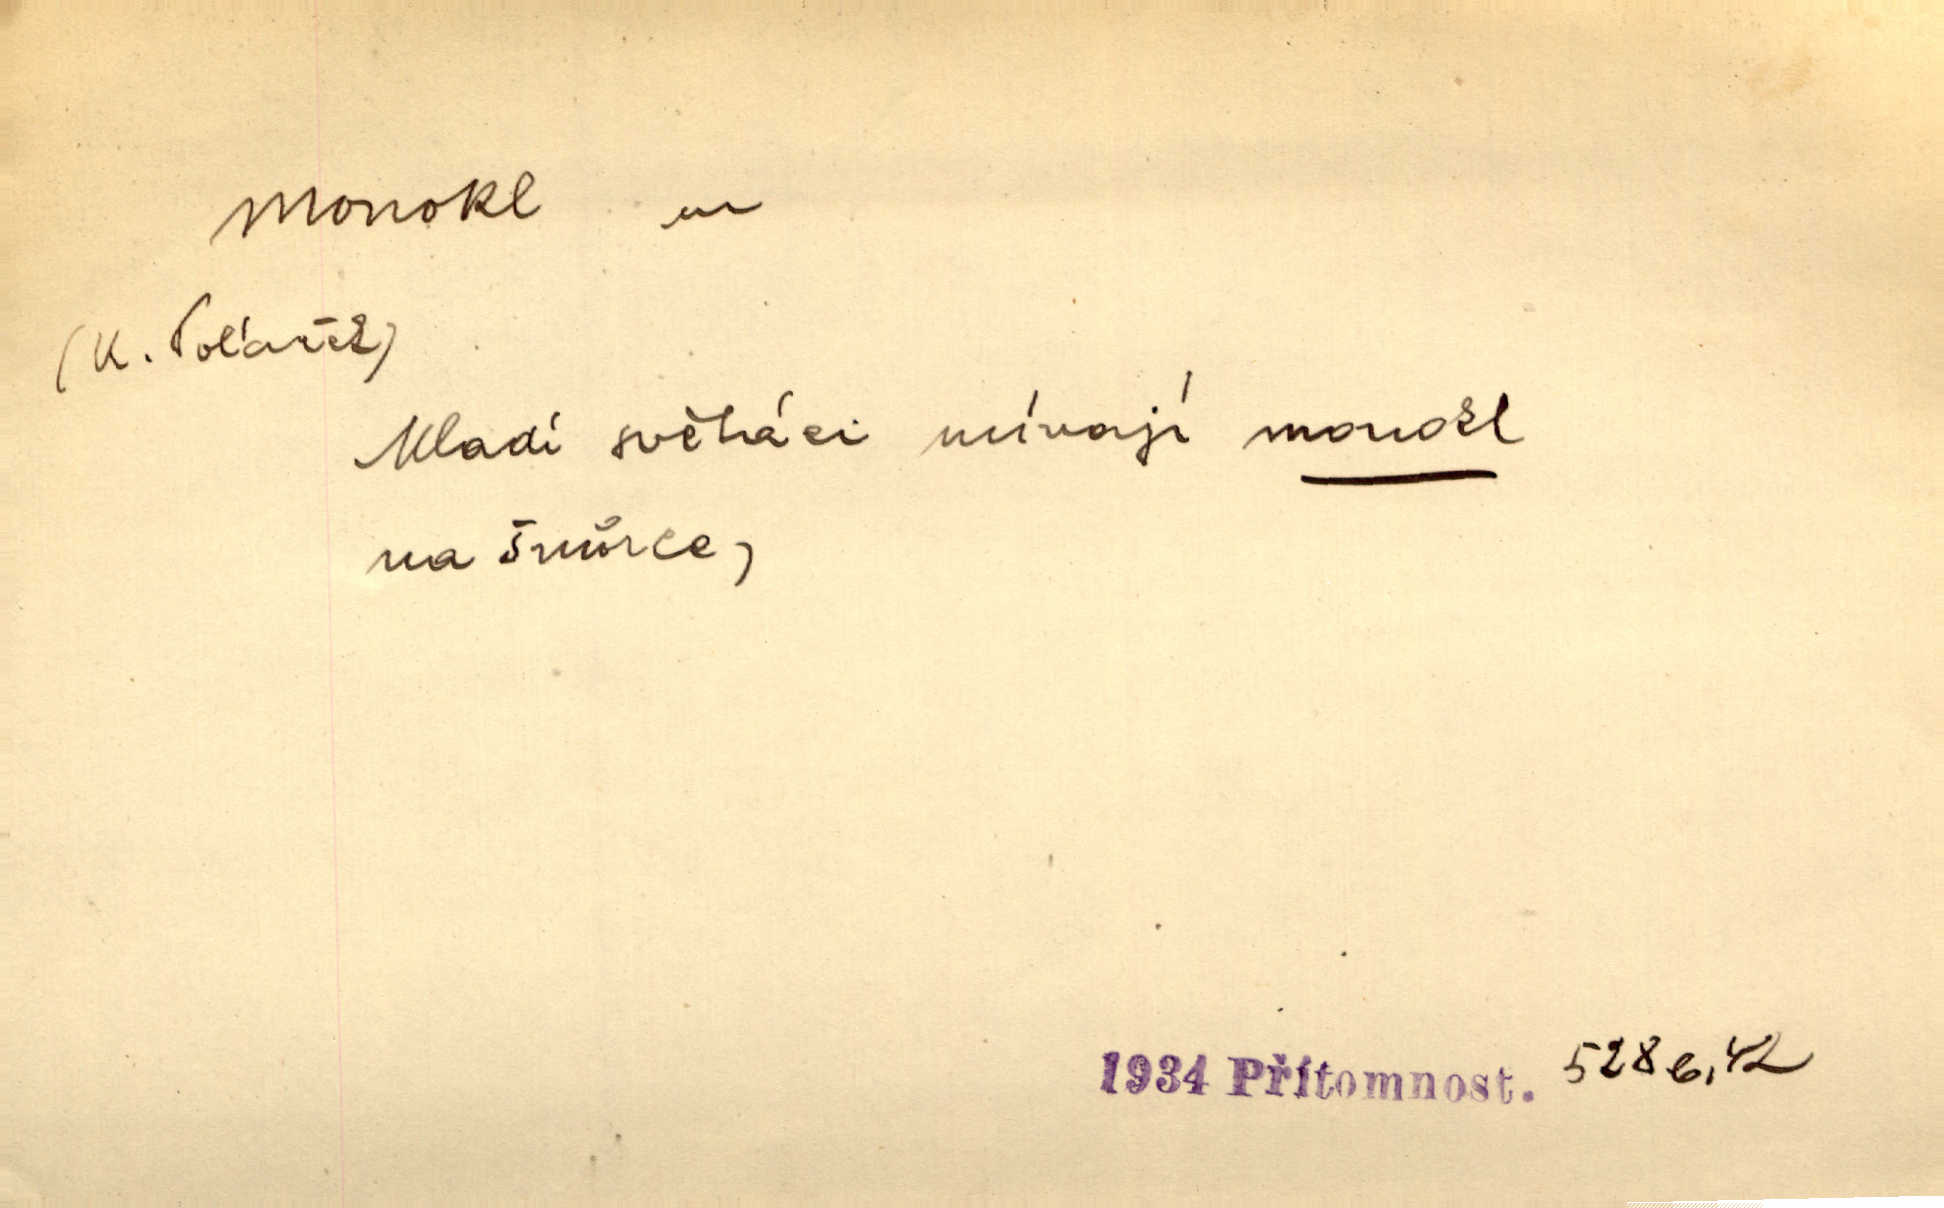 monokl m
(K. Poláček)
Mladí světáci mívají monokl
na šňůrce,
1934 Přítomnost. 528 b, 42